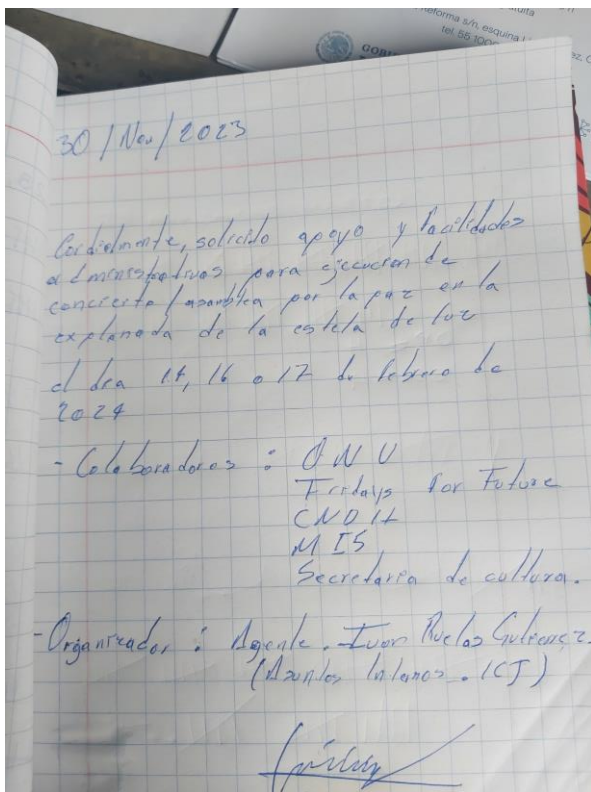 Reforma s/n, esquina
tel. 55
GOBI
30/Nov/2023
Cordialmente, solicito apoyo y facilidades
administrativas para ejecucion de
concierto/asamblea por la paz en la
explanada de la estela de luz
el dia 14, 16 o 17 de febrero de
2024
- Colaboradores : ONU
Fridays for Future
CNDH
MIS
Secretaria de cultura.
- Organizador : Agente. Ivan Ruelas Gutierrez.
(Asuntos Internos. ICJ)